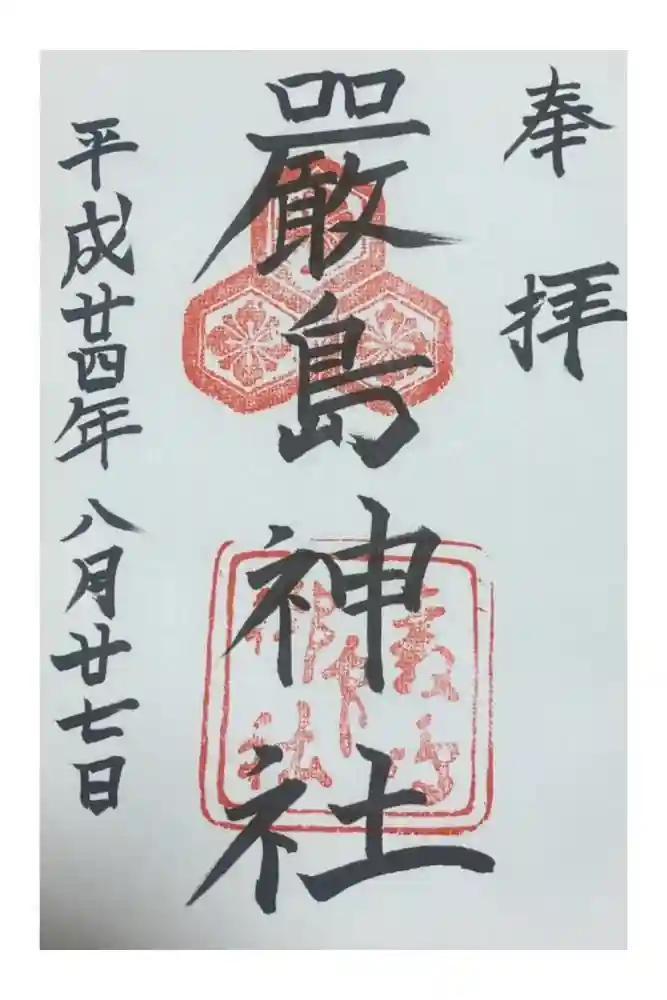 奉拝
嚴島神社
平成廿四年八月廿七日